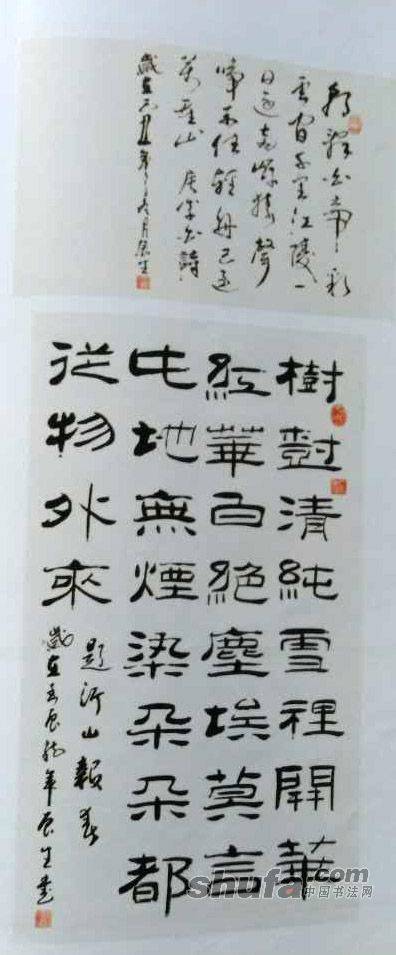 朝辭白帝彩
雲間千里江陵一
日還兩岸猿聲
啼不住輕舟已過
萬重山 唐李白詩
歲在乙丑年之冬月原生
樹樹清純雪裡開華
紅華白絕塵埃莫言
此地無煙染朵朵都
從物外來
題沂山報春
歲在壬辰龍年原生書
shufa.com
中国书法网